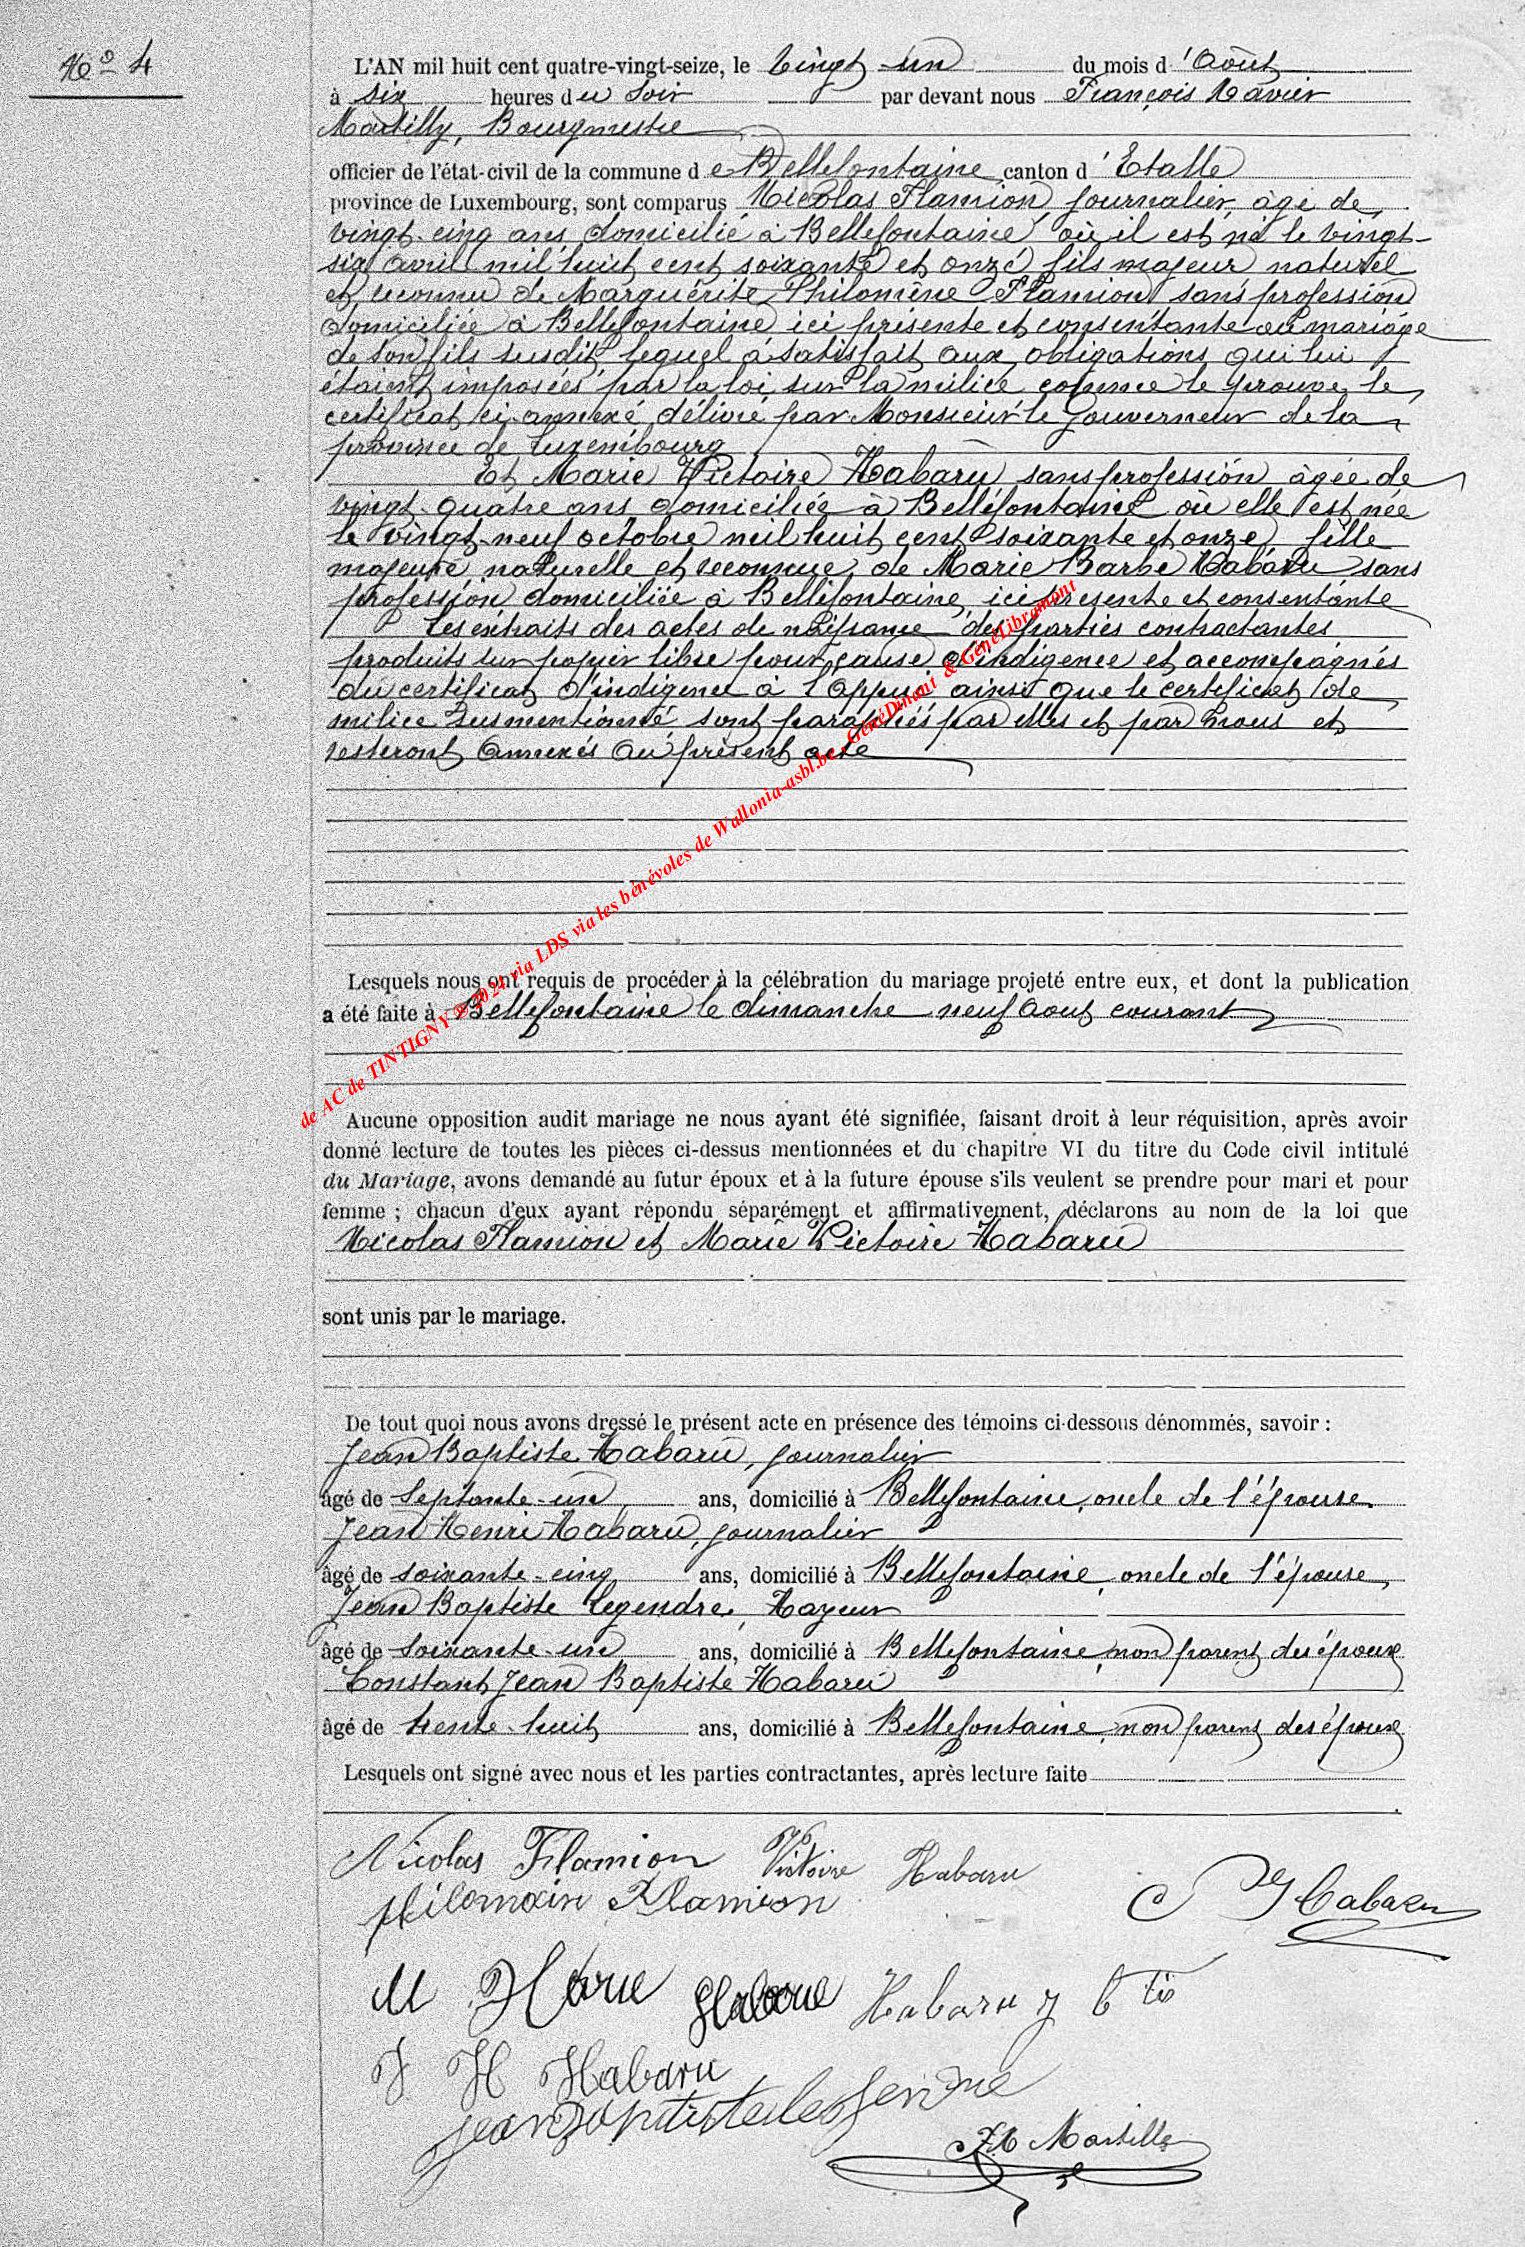 No 4
L'AN mil huit cent quatre-vingt-seize, le vingt un du mois d'Août
à six heures du soir par devant nous François Xavier
Martilly, Bourgmestre
officier de l'état-civil de la commune de Bellefontaine canton d'Etalle
province de Luxembourg, sont comparus Nicolas Flamion, journalier, âgé de
vingt-cinq ans domicilié à Bellefontaine où il est né le vingt-
six avril mil huit cent soixante et onze, fils majeur naturel
et reconnu de Marguérite Philomène Flamion sans profession
domiciliée à Bellefontaine ici présente et consentante au mariage
de son fils susdit lequel a satisfait aux obligations qui lui
étaient imposées par la loi sur la milice comme le prouve le
certificat ci-annexé délivré par Monsieur le Gouverneur de la
province de Luxembourg
Et Marie Victoire Habaru sans profession âgée de
vingt-quatre ans domiciliée à Bellefontaine où elle est née
le vingt-neuf octobre mil huit cent soixante et onze fille
majeure naturelle et reconnue de Marie Barbe Habaru sans
profession domiciliée à Bellefontaine, ici présente et consentante
Les extraits des actes de naissance des parties contractantes
produits sur papier libre pour cause d'indigence et accompagnés
du certificat d'indigence à l'appui ainsi que le certificat de
milice susmentionné sont paraphés par elles et par nous et
resteront annexés au présent acte
de AC de TINTIGNY © 2024 via LDS via les bénévoles de Wallonia-asbl.be, GénéDinant & GénéLibramont
Lesquels nous ont requis de procéder à la célébration du mariage projeté entre eux, et dont la publication
a été faite à Bellefontaine le dimanche neuf aout courant
Aucune opposition audit mariage ne nous ayant été signifiée, faisant droit à leur réquisition, après avoir
donné lecture de toutes les pièces ci-dessus mentionnées et du chapitre VI du titre du Code civil intitulé
du Mariage, avons demandé au futur époux et à la future épouse s'ils veulent se prendre pour mari et pour
femme ; chacun d'eux ayant répondu séparément et affirmativement, déclarons au nom de la loi que
Nicolas Flamion et Marie Victoire Habaru
sont unis par le mariage.
De tout quoi nous avons dressé le présent acte en présence des témoins ci-dessous dénommés, savoir :
Jean Baptiste Habaru, journalier
âgé de septante-un ans, domicilié à Bellefontaine, oncle de l'épouse
Jean Henri Habaru, journalier
âgé de soixante-cinq ans, domicilié à Bellefontaine, oncle de l'épouse
Jean Baptiste Legendre,
âgé de soixante-un ans, domicilié à Bellefontaine, non parent des époux
Constant Jean Baptiste Habaru
âgé de trente-huit ans, domicilié à Bellefontaine, non parent des époux
Lesquels ont signé avec nous et les parties contractantes, après lecture faite
Nicolas Flamion Victoire Habaru
Flamion C Habaru
M Habaru J b tis
J H Habaru
jean baptiste legendre
F X Martilly